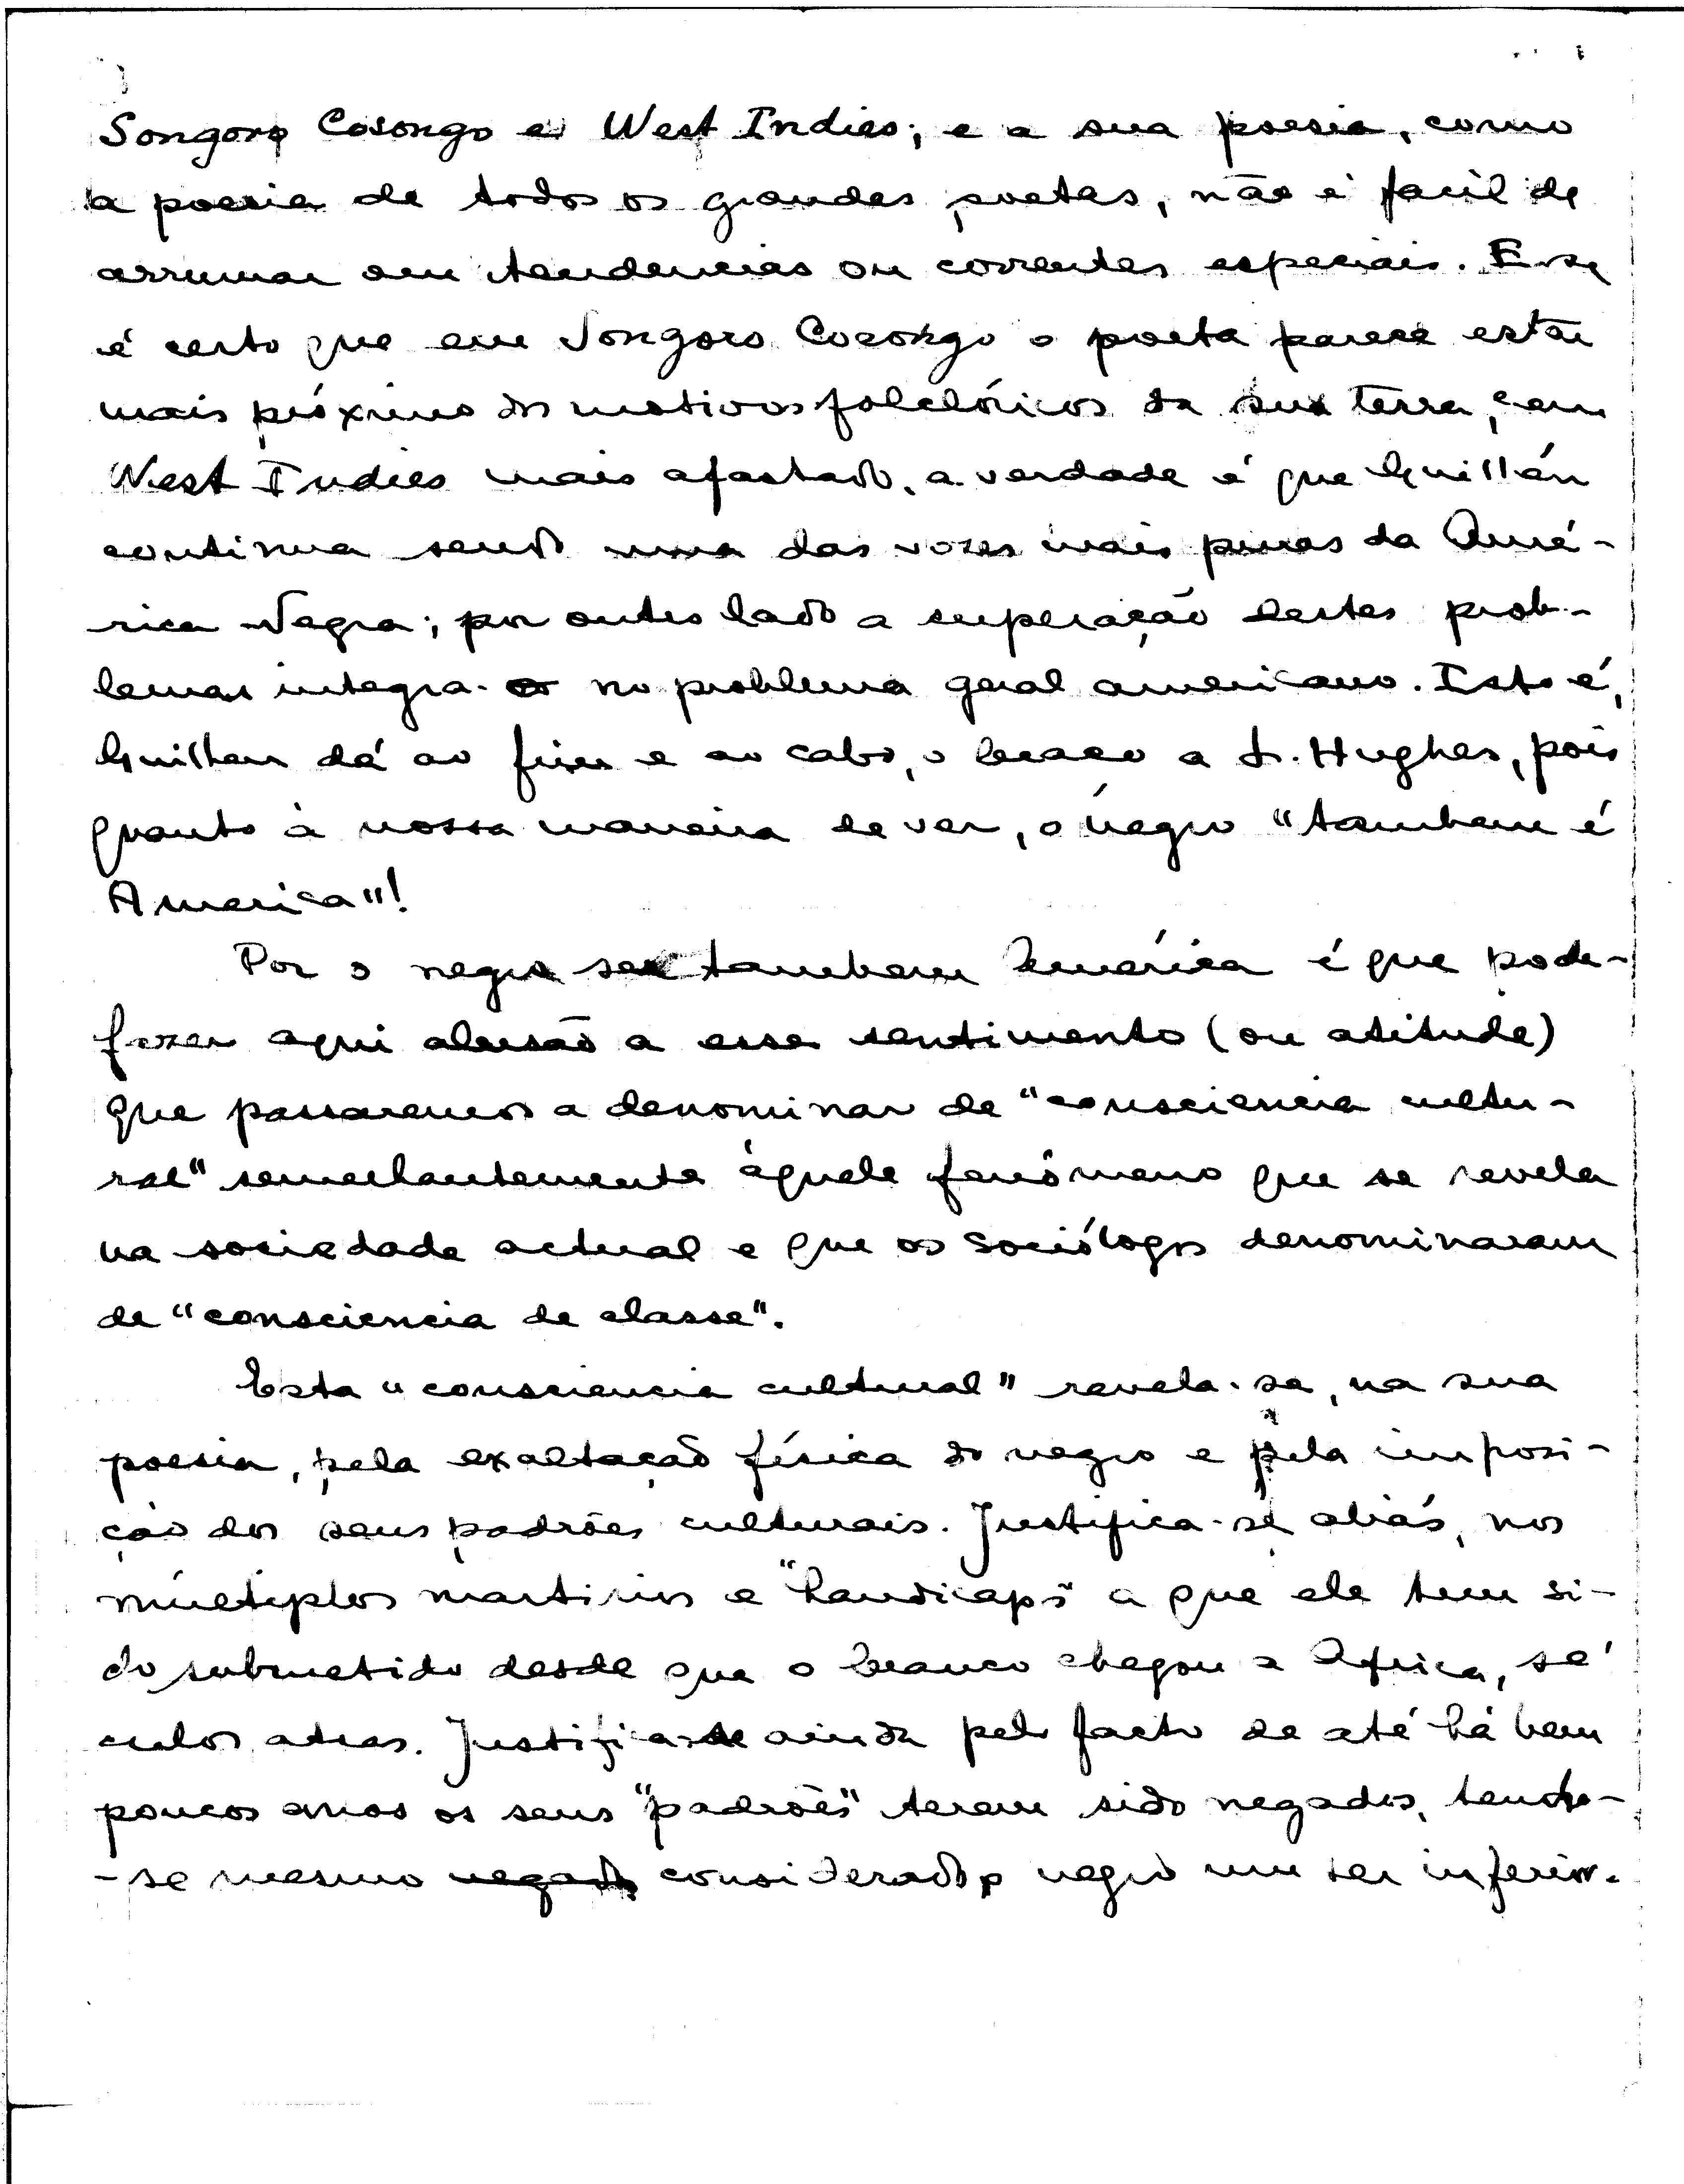 Songoro Cosongo e West Indies; e a sua poesia, como
a poesia de todos os grandes poetas, não é facil de
arrumar em tendencias ou correntes especiais. E se
é certo que em Songoro Cosongo o poeta parece estar
mais próximo dos motivos folclóricos da sua terra, e em
West Indies mais afastado, a verdade é que Guillén
continua sendo uma das vozes mais puras da Amé-
rica Negra; por outro lado a superação destes prob-
lemas integra-os no problema geral americano. Isto é,
Guillen dá ao fim e ao cabo, o braço a L. Hughes, pois
quanto à nossa maneira de ver, o negro "tambem é
America"!
Por o negro ser tambem América é que pode-
fazer aqui alusão a esse sentimento (ou atitude)
que passaremos a denominar de "consciencia cultu-
ral" semelhantemente àquele fenómeno que se revela
na sociedade actual e que os sociólogos denominaram
de "consciencia de classe".
Esta "consciencia cultural" revela-se, na sua
poesia, pela exaltação física do negro e pela imposi-
ção dos seus padrões culturais. Justifica-se aliás, nos
múltiplos martirios e "handicaps" a que ele tem si-
do submetido desde que o branco chegou a Africa, sé
culos atras. Justifica-se ainda pelo facto de até há bem
poucos anos os seus "padrões" terem sido negados, tendo-
-se mesmo negado considerado o negro um ser inferior.